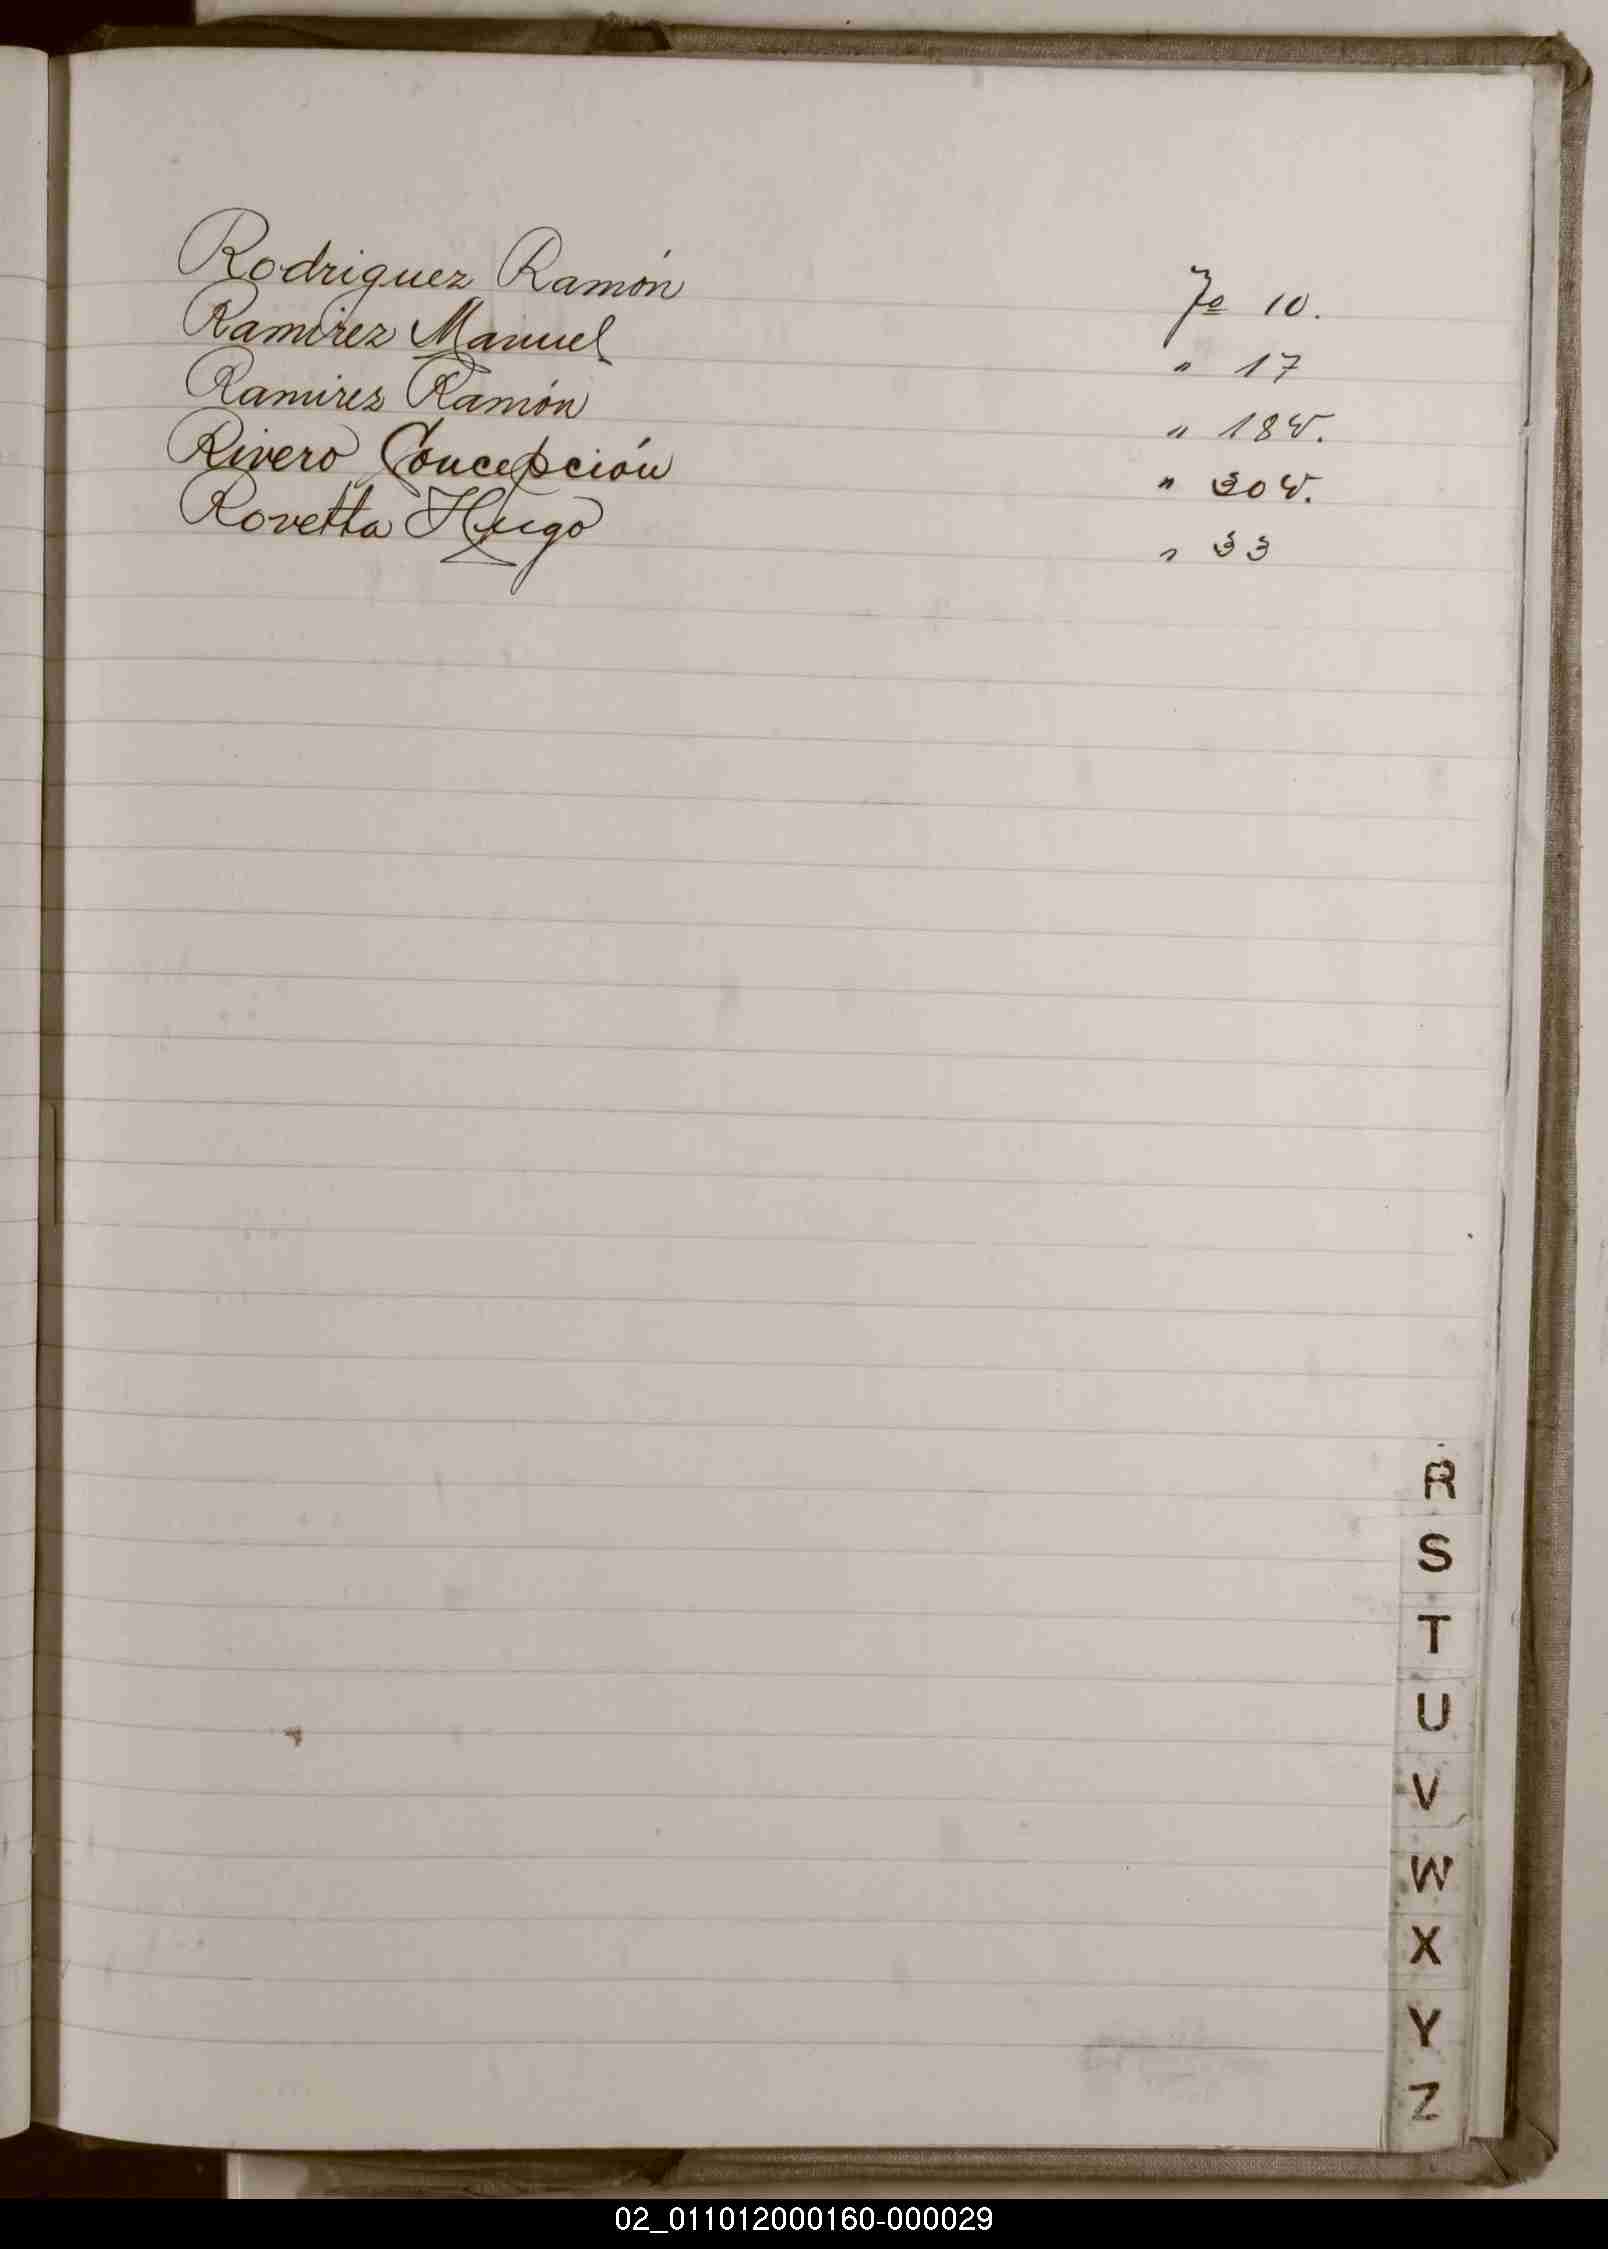 Rodriguez Ramón Fo 10.
Ramirez Manuel " 17
Ramirez Ramón " 18v.
Rivero Concepción " 30v.
Rovetta Hugo " 33
R
S
T
U
V
W
X
Y
Z
02_011012000160-000029